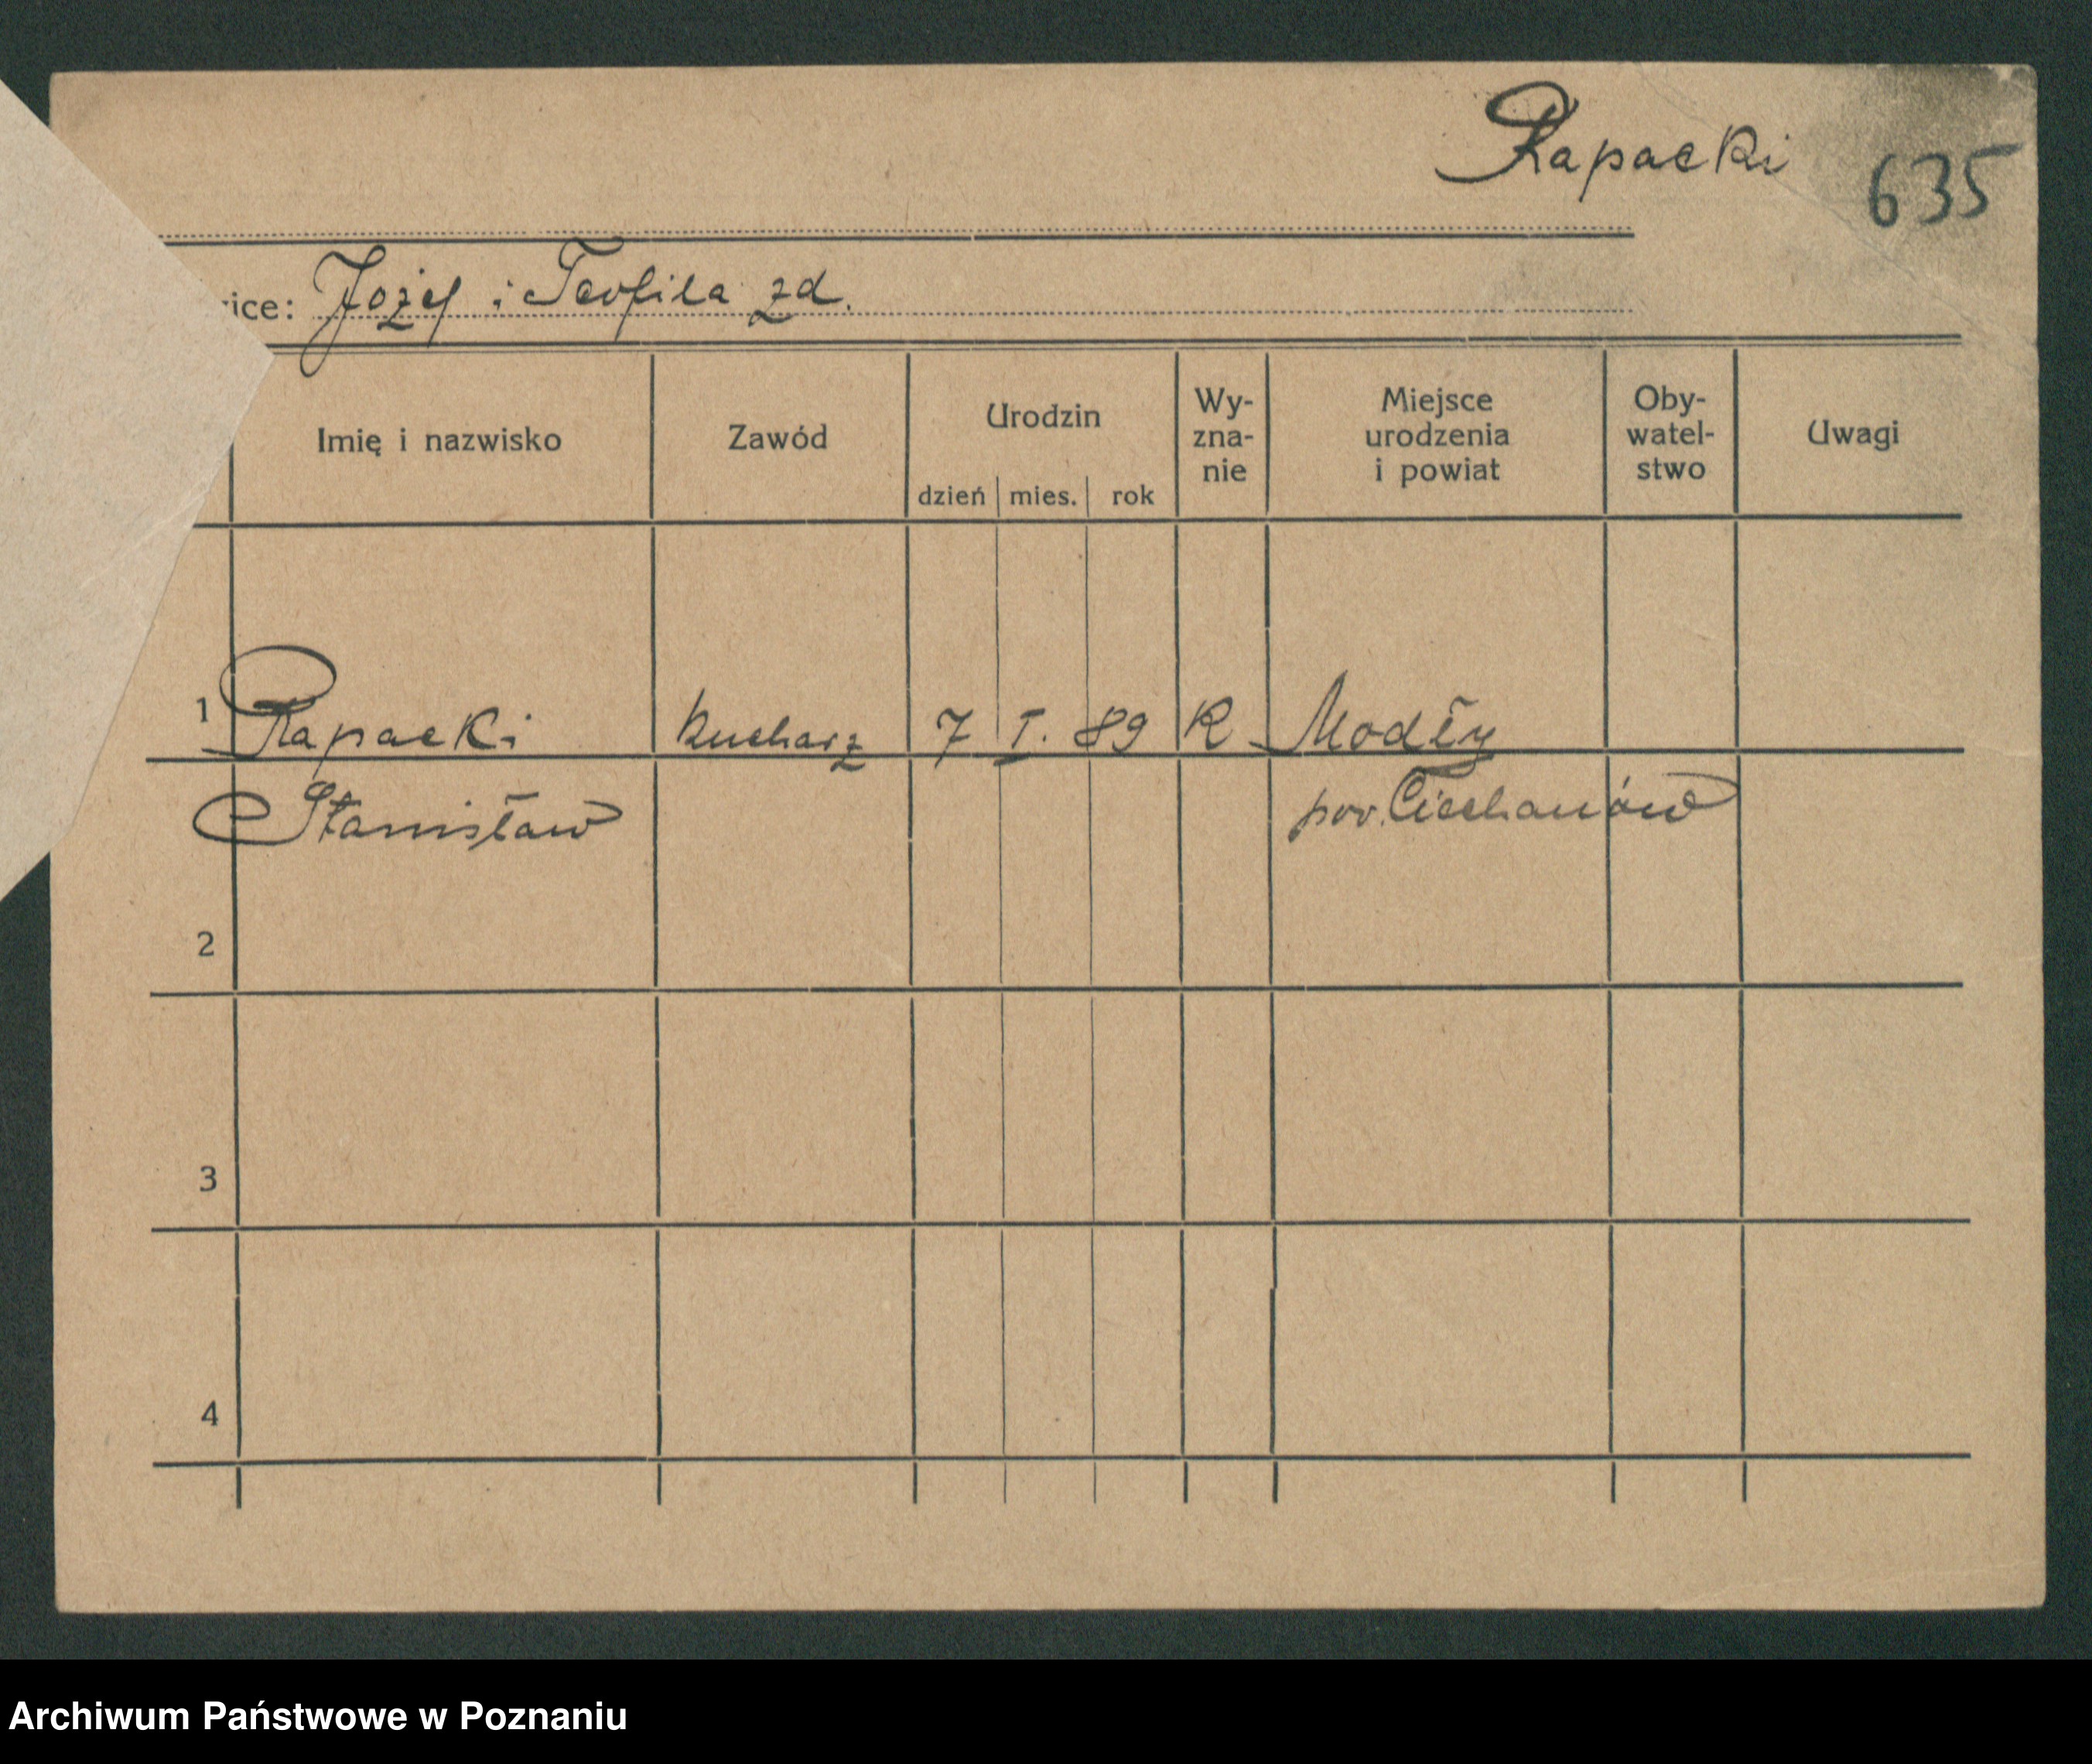 Rapacki
635
ice: Jożef i Teofila zd.
Imię i nazwisko Zawód Urodzin dzień mies. rok Wy-zna-nie Miejsce urodzenia i powiat Oby-watel-stwo Uwagi
1 Rapacki Kucharz 7 I. 89 R Modły
Stanisław pow. Ciechanów
2
3
4
Archiwum Państwowe w Poznaniu